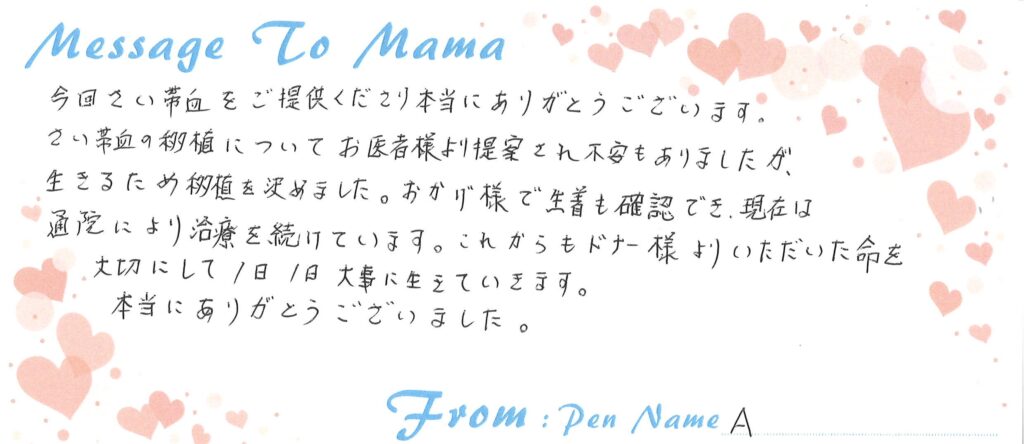 Message To Mama
今回さい帯血をご提供くださり本当にありがとうございます。
さい帯血の移植についてお医者様より提案され不安もありましたが、
生きるため移植を決めました。おかげ様で生着も確認でき、現在は
通院により治療を続けています。これからもドナー様よりいただいた命を
大切にして1日1日大事に生きていきます。
本当にありがとうございました。
From : Pen Name A